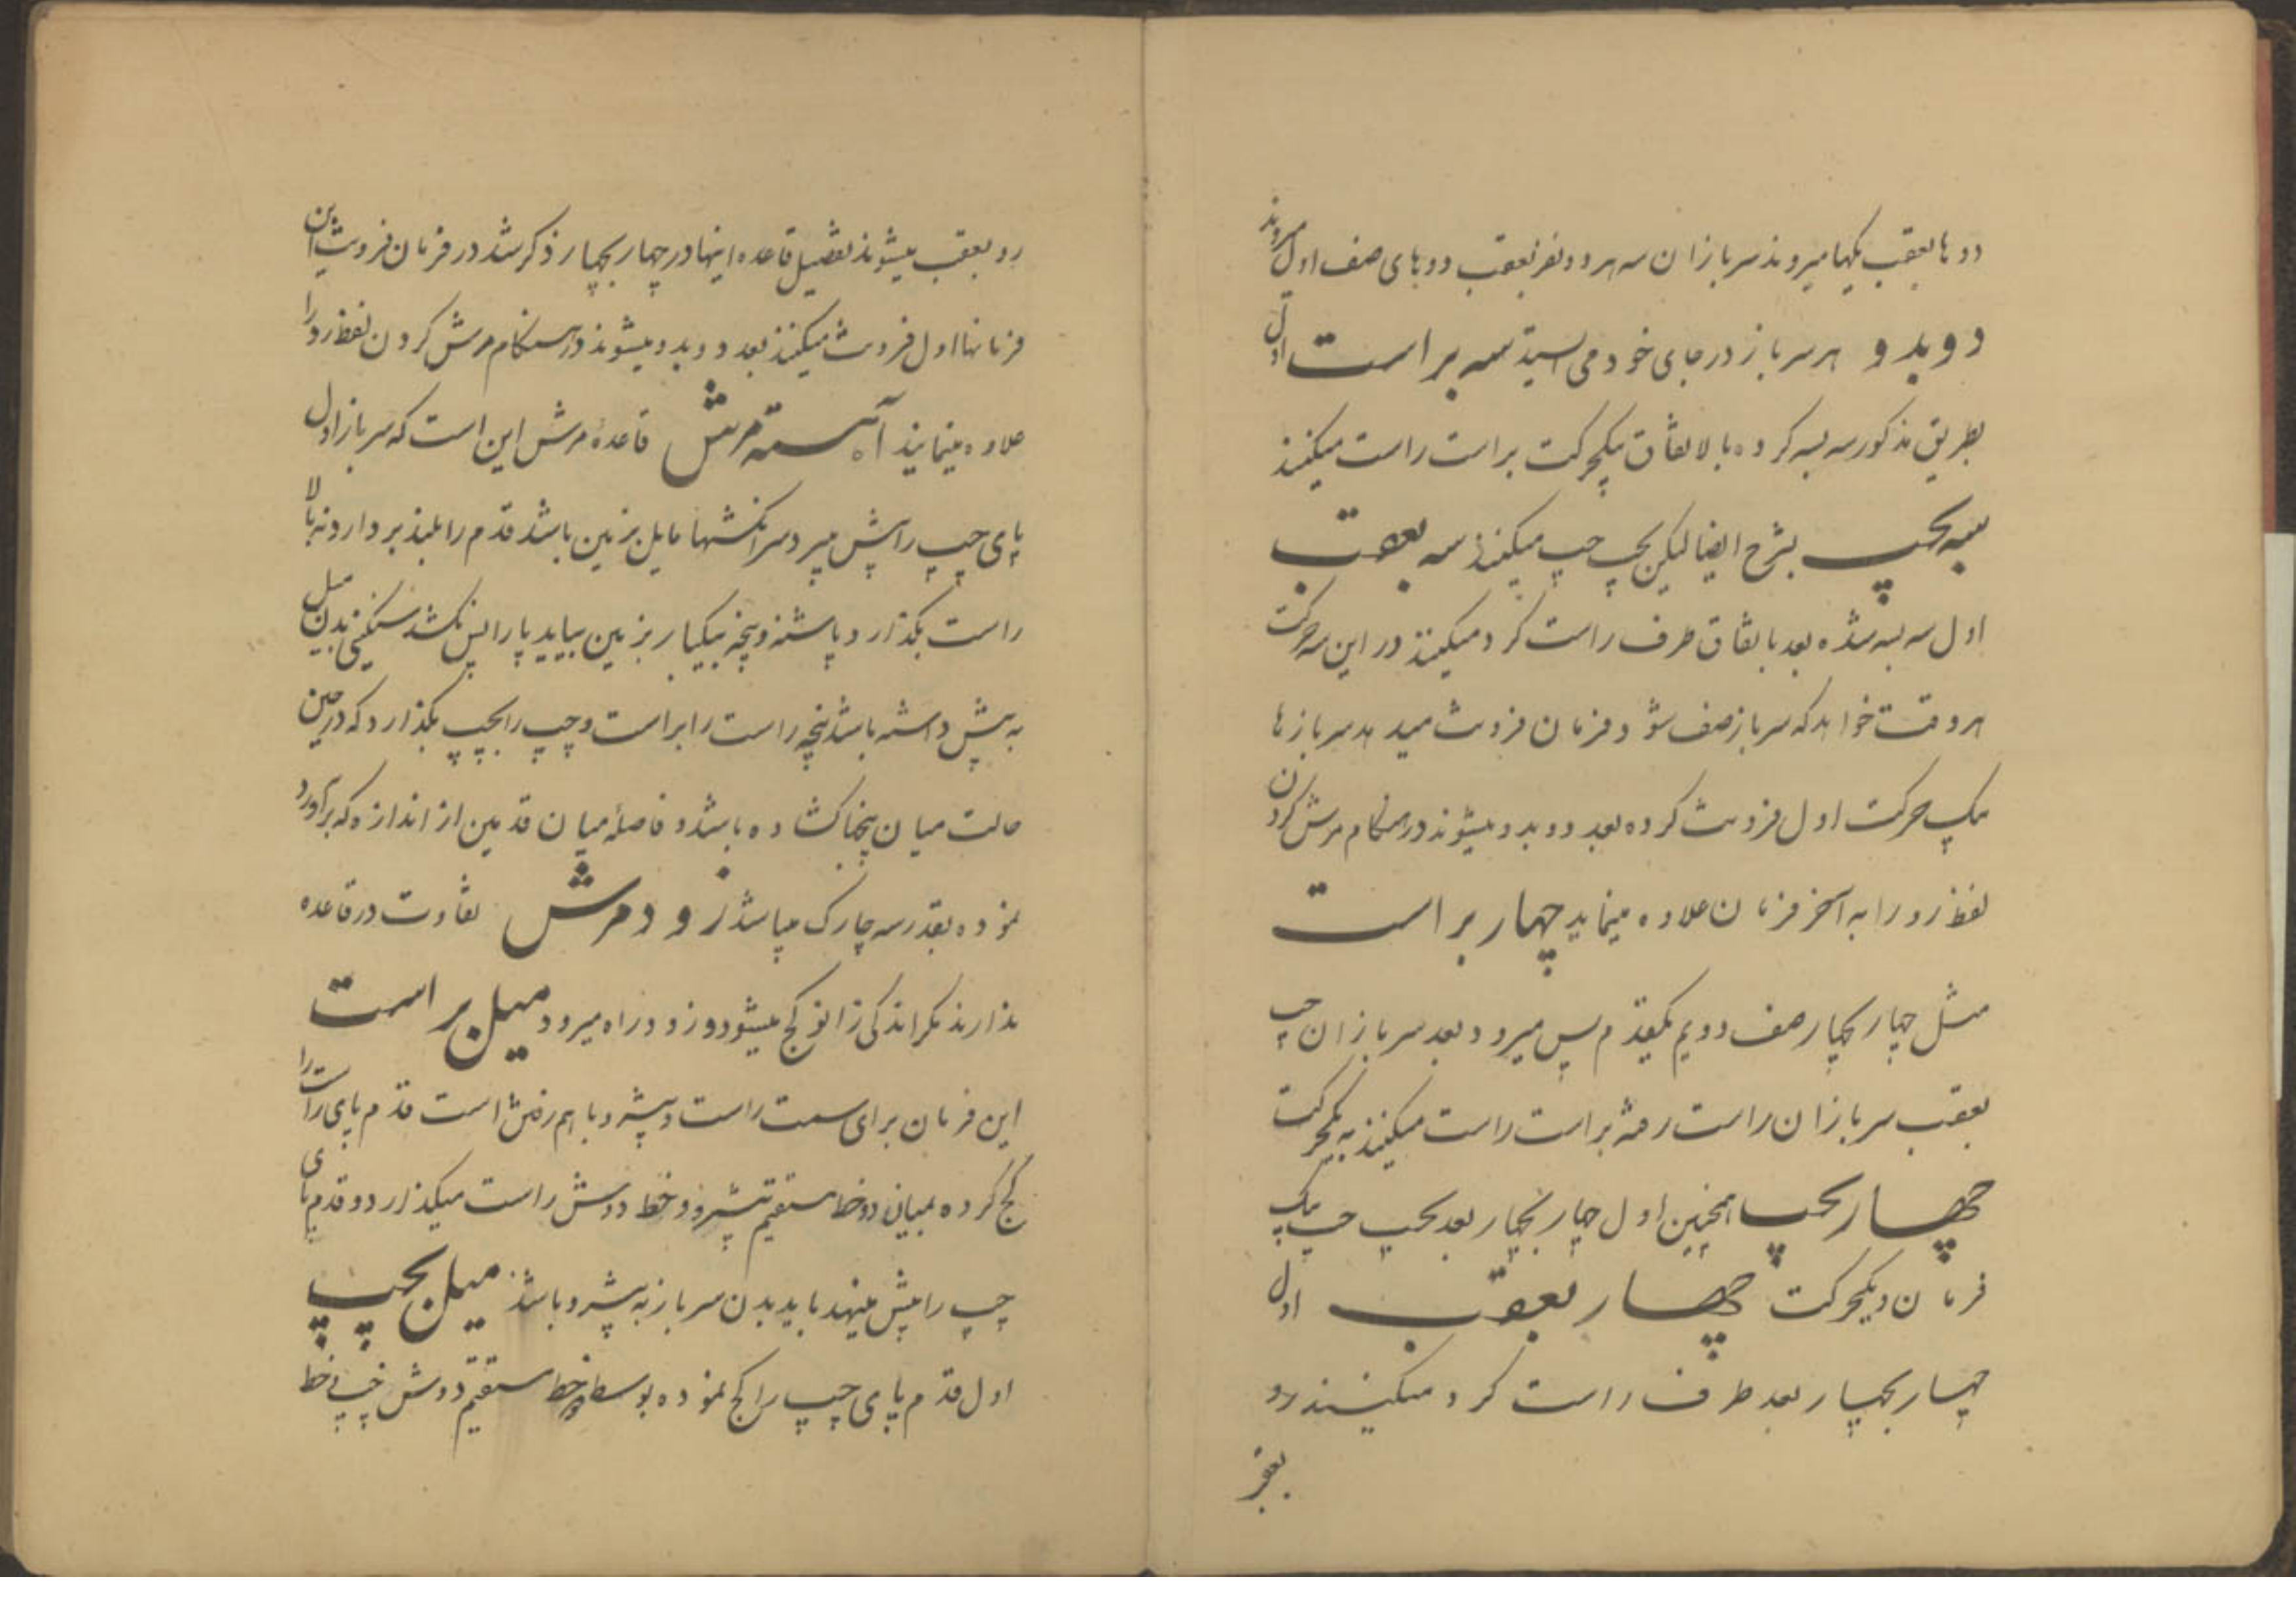 دوها بعقب یکها میروند سربازان سه هر دو نفر بعقب دوهای صف اول میروند
دو بدو هر سرباز در جای خود می ایستد سه براست اول
بطریق مذکور سه بسه کرده بالاتفاق بیکحرکت براست راست میکنند
سه بچپ بشرح ایضا لیکن بچپ چپ میکنند سه بعقب
اول سه بسه شده بعد باتفاق طرف راست کرد میکنند در این سه حرکت
هر وقت خواهد که سرباز صف شود فرمان فرونت میدهد سربازها
بیک حرکت اول فرونت کرده بعد دو بدو میشوند در هنگام مرش کردن
لفظ رو را به آخر فرمان علاوه مینماید چهار براست
مثل چهار بچهار صف دویم یکقدم پس میرود بعد سربازان چپ
بعقب سربازان راست رفته براست راست میکنند به یکحرکت
چهار بچپ همچنین اول چهار بچهار بعد بچپ چپ بیک
فرمان و یکحرکت چهار بعقب اول
چهار بچهار بعد طرف راست کرد میکنند رو
بعقب
رو بعقب میشوند تفصیل قاعده اینها در چهار بچهار ذکر شد در فرمان فرونت این
فرمانها اول فرونت میکنند بعد دو بدو میشوند در هنگام مرش کردن لفظ رو را
علاوه مینمایند آهسته مرش قاعدهٔ مرش این است که سرباز اول
پای چپ را پیش میبرد سر انگشتها مایل بزمین باشد قدم را بلند بردارد نه بالا
راست بگذارد پاشنه و پنجه بیکبار بزمین بیاید پا را پس نکشد سنگینی بدن میل
به پیش داشته باشد پنجه راست را براست و چپ را بچپ بگذارد که در حین
حالت میان پنجها کشاده باشد و فاصلهٔ میان قدمین از اندازه که برآورد
نموده بقدر سه چارک میباشد زود مرش تفاوت در قاعده
ندارند مگر اندکی زانو کج میشود و زود راه میرود میل براست
این فرمان برای سمت راست و پیشرو با هم رفتن است قدم پای راست را
کج کرده بمیان دو خط مستقیم پیشرو و خط دوش راست میگذارد و قدم پای
چپ را پیش مینهد باید بدن سرباز به پیشرو باشد میل بچپ
اول قدم پای چپ را کج نموده بوسط دو خط مستقیم دوش چپ و خط